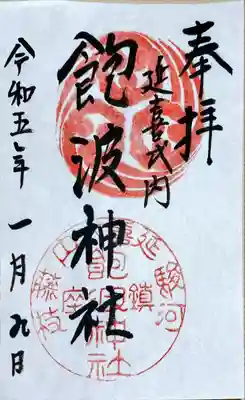 奉拝
延喜式内
飽波神社
令和五年
一月九日
駿河
延喜
藤枝
鎮座
飽波神社